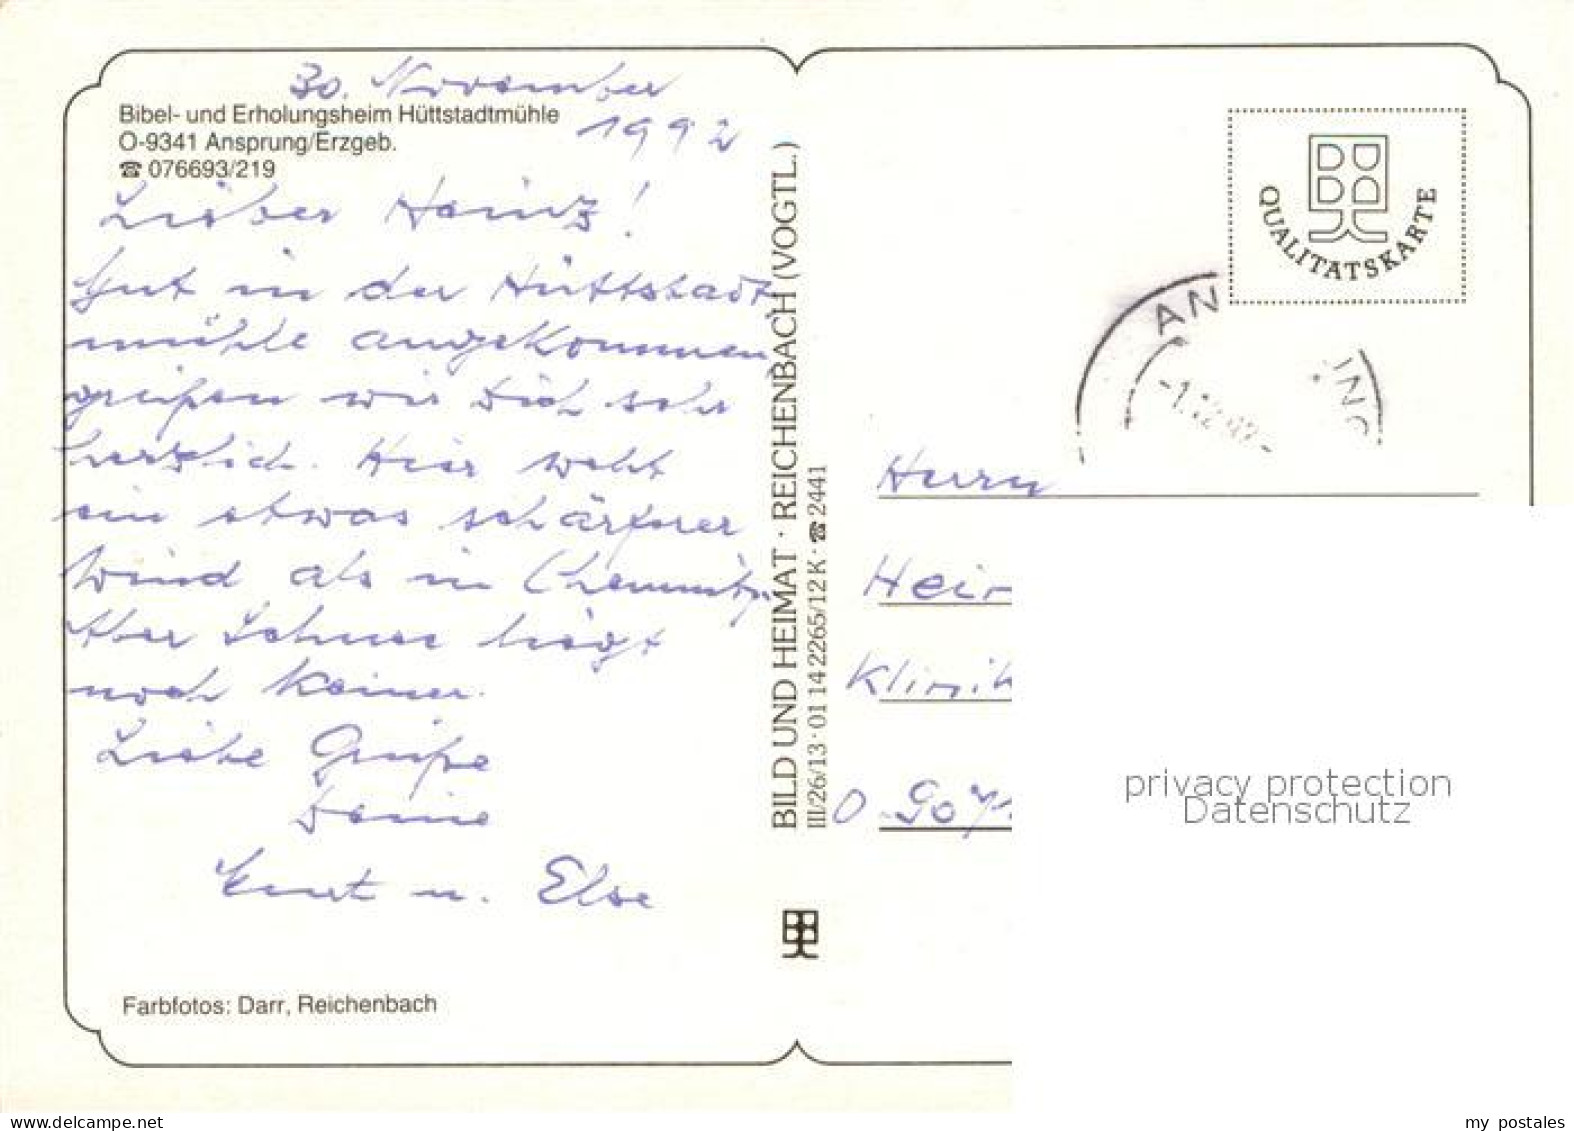 30. November
1992
Bibel- und Erholungsheim Hüttstadtmühle
O-9341 Ansprung/Erzgeb.
☎ 076693/219
Lieber Heinz!
Gut in der Hüttstadt-
mühle angekommen,
grüßen wir Dich sehr
herzlich. Hier weht
ein etwas schärferer
Wind als in Chemnitz.
Aber Schnee liegt
noch keiner.
Liebe Grüße
Deine
Kurt u. Else
Farbfotos: Darr, Reichenbach
BILD UND HEIMAT · REICHENBACH (VOGTL.)
III/26/13 · 01 14 2265/12 K · ☎ 2441
QUALITÄTSKARTE
AN
UNG
-1.12.92-
Herrn
Hein
Klinik
O
privacy protection
Datenschutz
www.delcampe.net
my postales